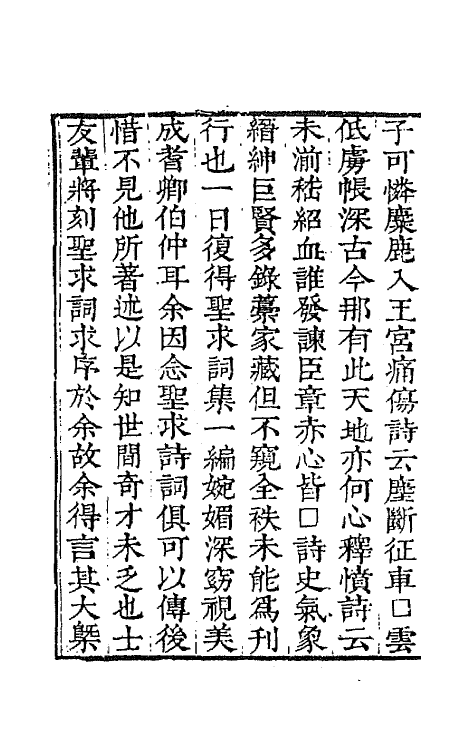 子可憐麋鹿入王宮痛傷詩云塵斷征車口雲
低虜帳深古今那有此天地亦何心釋憤詩云
未湔嵇紹血誰發諫臣章赤心皆口詩史氣象
縉紳巨賢多錄藁家藏但不窺全袟未能爲刊
行也一日復得聖求詞集一編婉媚深窈視美
成耆卿伯仲耳余因念聖求詩詞俱可以傳後
惜不見他所著述以是知世間奇才未乏也士
友輩將刻聖求詞求序於余故余得言其大槩